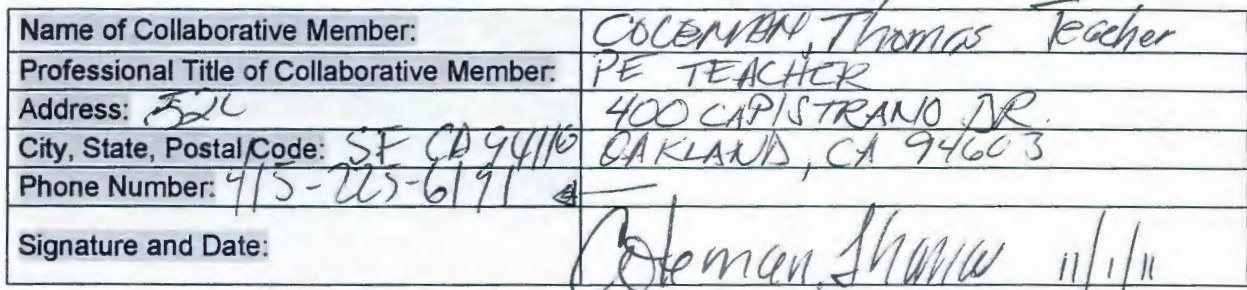 Name of Collaborative Member: COLEMAN, Thomas Teacher
Professional Title of Collaborative Member: PE TEACHER
Address: 400 CAPISTRANO DR.
City, State, Postal Code: SF CA 94110 OAKLAND, CA 94603
Phone Number: 415-225-6191
Signature and Date: Coleman, Thomas 11/1/11